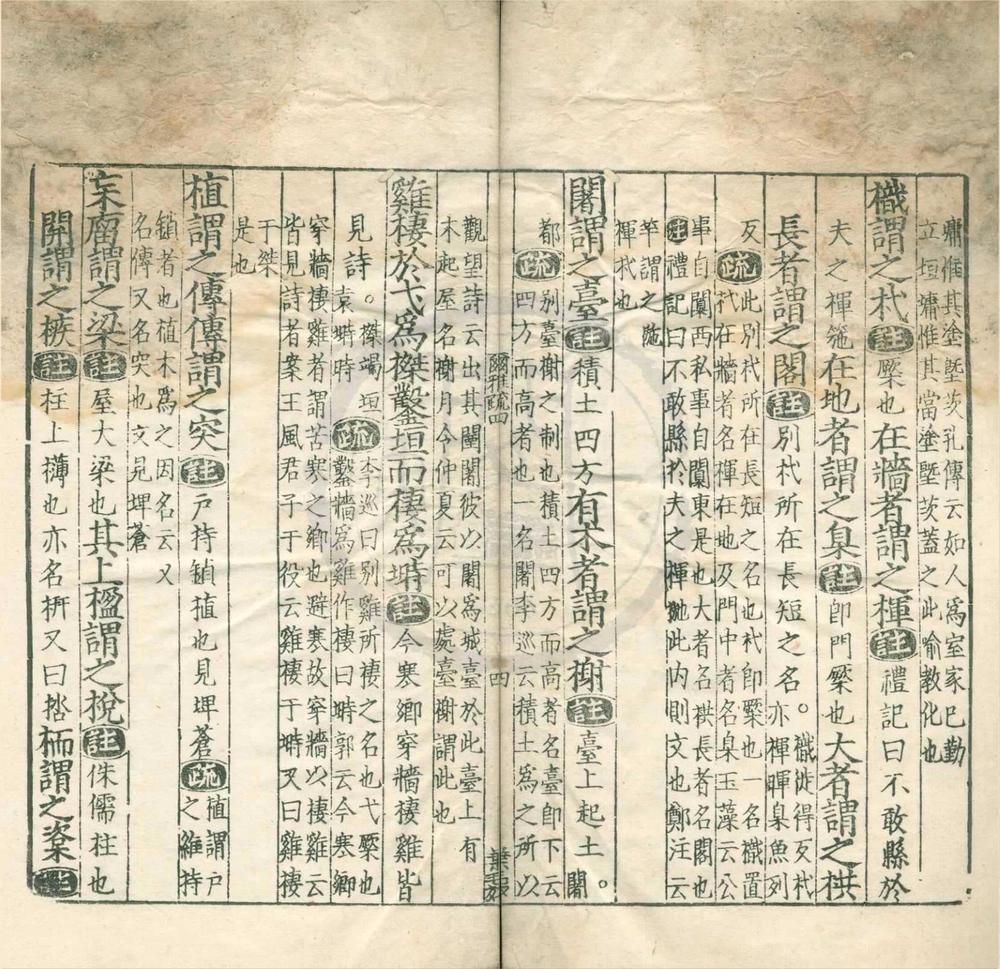 墉惟其塗塈茨孔傳云如人爲室家已勤
立垣墉惟其當塗塈茨蓋之此喻教化也
樴謂之杙註橜也在牆者謂之楎註禮記曰不敢縣於
夫之楎箷在地者謂之臬註卽門橜也大者謂之栱
長者謂之閣註別杙所在長短之名。樴徙得反杙
亦楎暉臬魚列
反疏此別杙所在長短之名也杙卽橜也一名樴置
杙在牆者名楎在地及門中者名臬玉藻云公
事自闑西私事自闑東是也大者名栱長者名閣也
註禮記曰不敢縣於夫之楎箷此內則文也鄭注云
竿謂之箷
楎杙也
闍謂之臺註積土四方有木者謂之榭註臺上起土。闍
都疏別臺榭之制也積土四方而高者名臺卽下云
四方而高者也一名闍李巡云積土爲之所以
爾雅疏四
四
觀望詩云出其闉闍彼以闍爲城臺於此臺上有
木起屋名榭月令仲夏云可以處臺榭謂此也
雞棲於弋爲榤鑿垣而棲爲塒註今寒鄉穿牆棲雞皆
見詩。榤竭垣
袁塒時疏李巡曰別雞所棲之名也弋橜也
鑿牆爲雞作棲曰塒郭云今寒鄉
穿牆棲雞者謂苦寒之鄉也避寒故穿牆以棲雞云
皆見詩者案王風君子于役云雞棲于塒又曰雞棲
于桀
是也
植謂之傳傳謂之突註戶持鎖植也見埤蒼疏植謂戶
之維持
鎖者也植木爲之因名云又
名傳又名突也文見埤蒼
杗廇謂之梁註屋大梁也其上楹謂之梲註侏儒柱也
開謂之槉註柱上欂也亦名枅又曰㭼栭謂之楶註